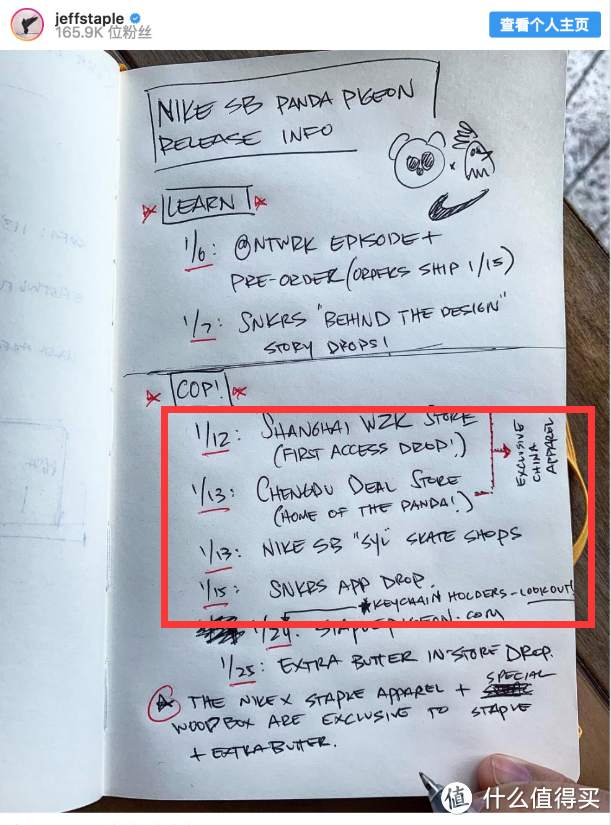 jeffstaple
165.9K 位粉丝
查看个人主页
NIKE SB PANDA PIGEON
RELEASE INFO
LEARN
1/6: @NTWRK EPISODE +
PRE-ORDER (ORDERS SHIP 1/15)
1/7: SNKRS "BEHIND THE DESIGN"
STORY DROPS!
COP!
1/12: SHANGHAI WZK STORE
(FIRST ACCESS DROP!)
1/13: CHENGDU DEAL STORE
(HOME OF THE PANDA!)
EXCLUSIVE
CHINA
APPAREL
1/13: NIKE SB "SYL" SKATE SHOPS
1/15: SNKRS APP DROP.
*KEYCHAIN HOLDERS - LOOKOUT!
1/24: STAPLEPIGEON.COM
1/25: EXTRA BUTTER IN-STORE DROP.
THE NIKE X STAPLE APPAREL + SPECIAL
WOOD BOX ARE EXCLUSIVE TO STAPLE
+ EXTRA BUTTER.
值 什么值得买